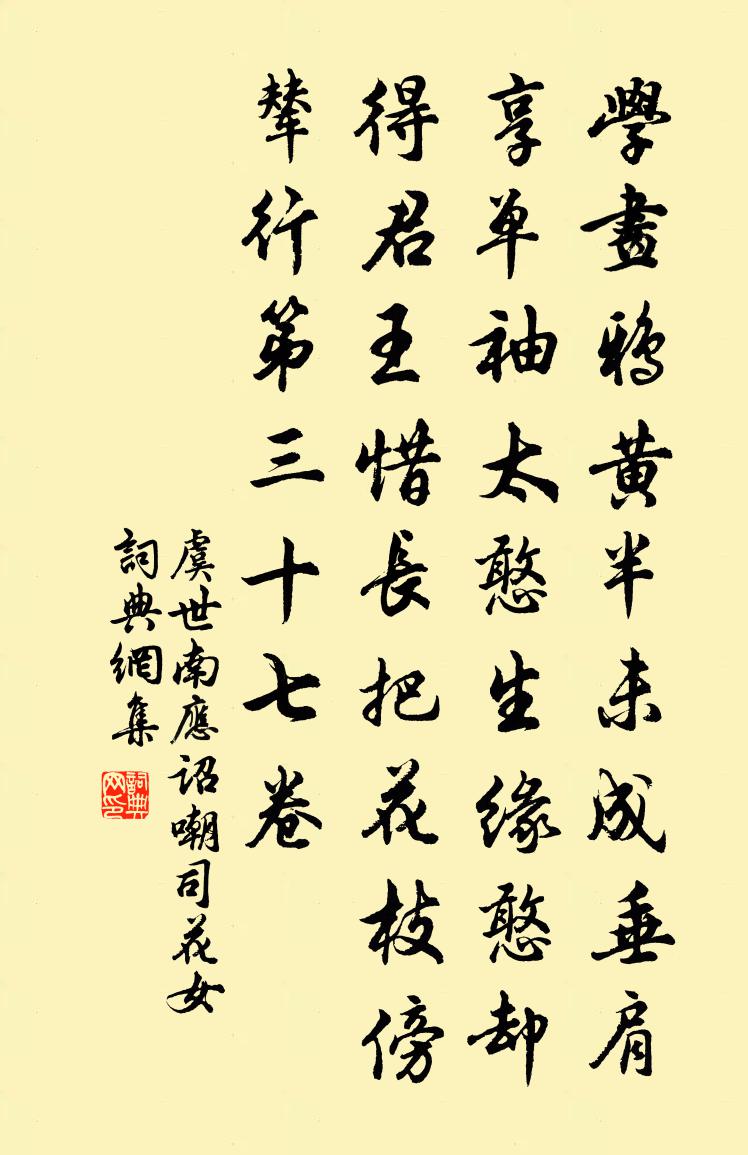 學畫鴉黃半未成垂肩
享单袖太憨生緣憨却
得君王惜長把花枝傍
輦行第三十七卷
虞世南應詔嘲司花女
詞典網集
詞典网印